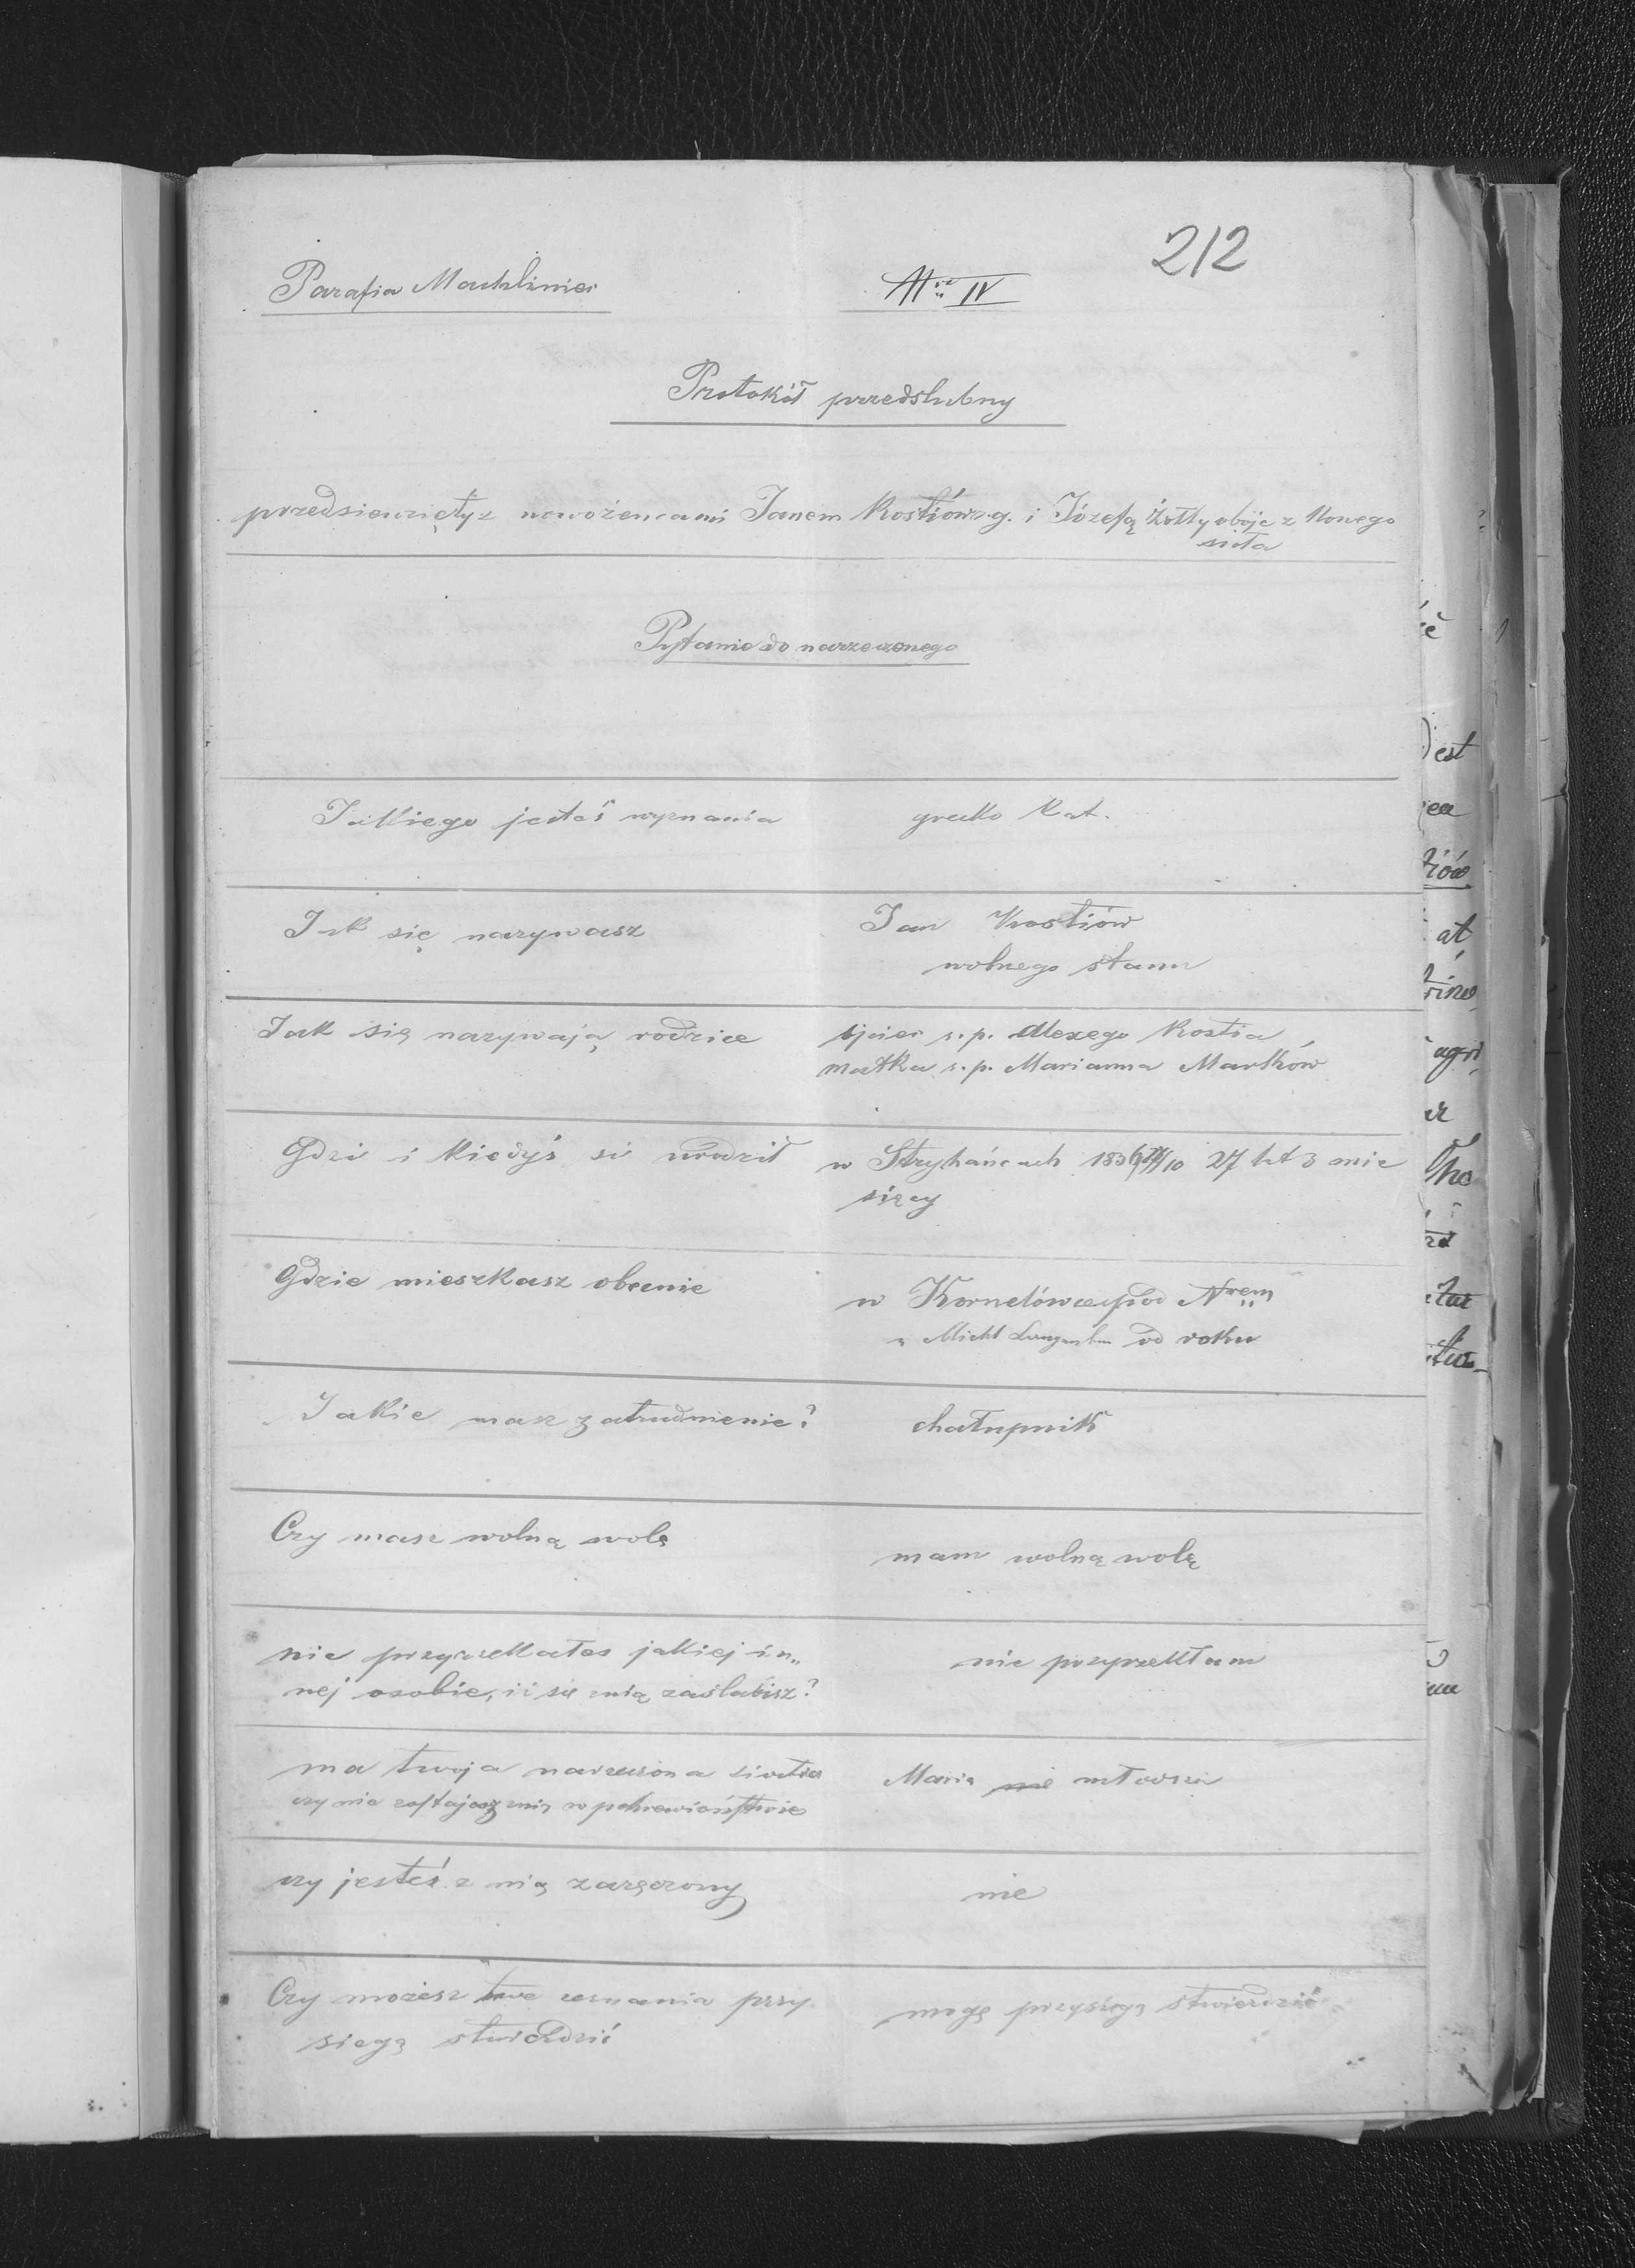 212
Parafia Machliniec
Nro IV
Protokół przedślubny
przedsiewzięty z nowożeńcami Janem Kostiów r.g. i Józefą Żołty oboje z Nowego
sioła
Pytanie do narzeczonego
Jakiego jesteś wyznania
grecko kat.
Jak się nazywasz
Jan Kostiów
wolnego stanu
Jak się nazywają rodzice
ojciec s. p. Alexego Kostia
matka s. p. Marianna Markłów
Gdzi i kiedyś si urodził
w Stryhańcach 27 lat 3 mie
sięcy
Gdzie mieszkasz obecnie
w Kornelówce pod Nrem
od roku
Jakie masz zatrudnienie?
chałupnik
Czy masz wolną wolę
mam wolną wolę
nie przyrzekałeś jakiej in„
nej osobie, iż się z nią zaślubisz?
nie przyrzekłam
ma twoja narzeczona siostra
czy nie zostajesz z nią w pokrewieństwie
Maria nie młodsza
czy jesteś z nią zaręczony
nie
Czy możesz twe zeznania przy
sięgą stwierdzić
mogę przysięgą stwierdzić